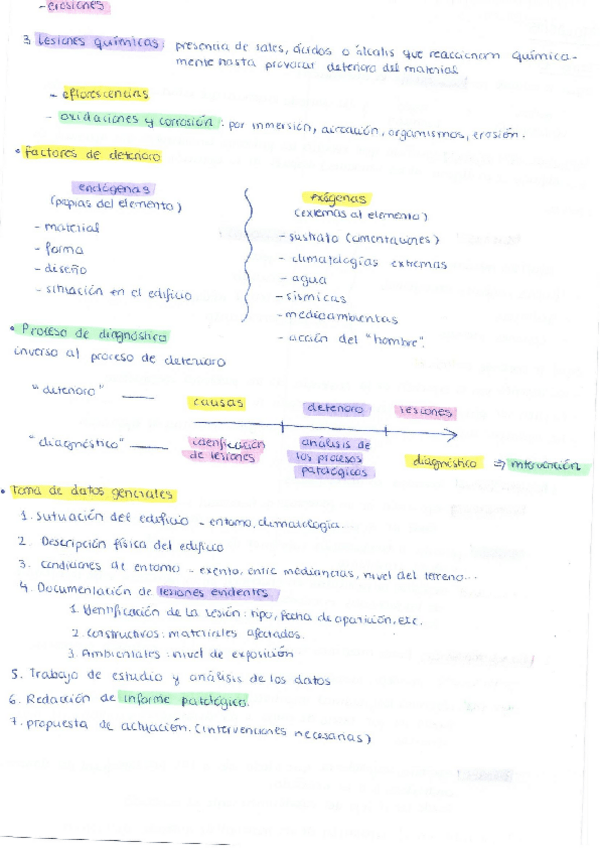 - erosiones
3. Lesiones químicas: presencia de sales, ácidos o álcalis que reaccionan química-
mente hasta provocar deterioro del material.
- eflorescencias
- oxidaciones y corrosión: por inmersión, aireación, organismos, erosión.
• Factores de deterioro
endógenas
(propias del elemento)
- material
- forma
- diseño
- situación en el edificio
exógenas
(externas al elemento)
- sustrato (cimentaciones)
- climatologías extremas
- agua
- sísmicas
- medioambientas
- acción del "hombre".
• Proceso de diagnóstico
inverso al proceso de deterioro
"deterioro" causas deterioro lesiones
"diagnóstico" identificación de lesiones análisis de los procesos patológicos diagnóstico ⇒ intervención
• Toma de datos generales
1. Situación del edificio - entorno, climatología...
2. Descripción física del edificio
3. Condiciones de entorno - exento, entre medianeras, nivel del terreno...
4. Documentación de lesiones evidentes
1. Identificación de la lesión: tipo, fecha de aparición, etc.
2. Constructivos: materiales afectados.
3. Ambientales: nivel de exposición
5. Trabajo de estudio y análisis de los datos
6. Redacción de informe patológico.
7. propuesta de actuación. (intervenciones necesarias)